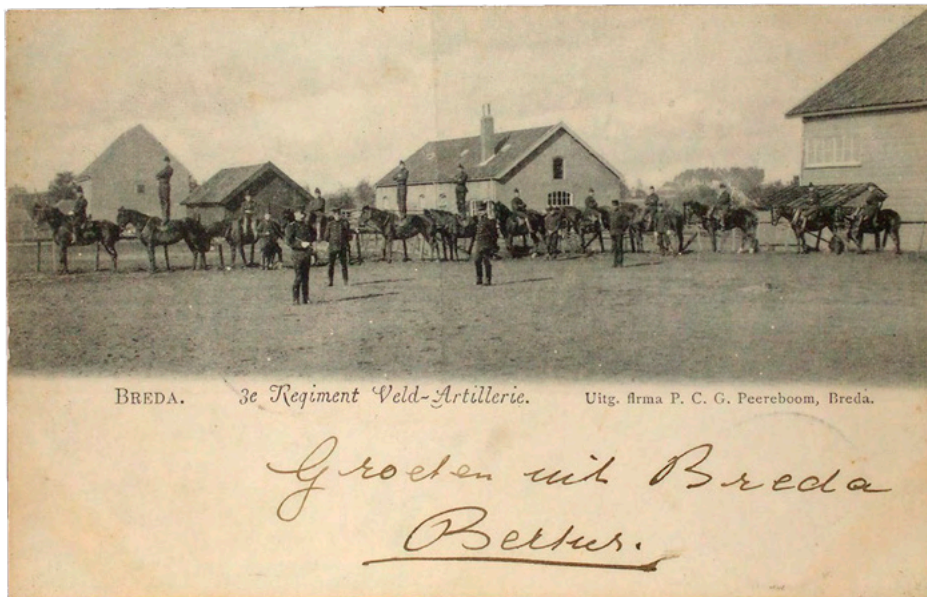 BREDA. 3e Regiment Veld-Artillerie. Uitg. firma P. C. G. Peereboom, Breda.
Groeten uit Breda
Bertus.